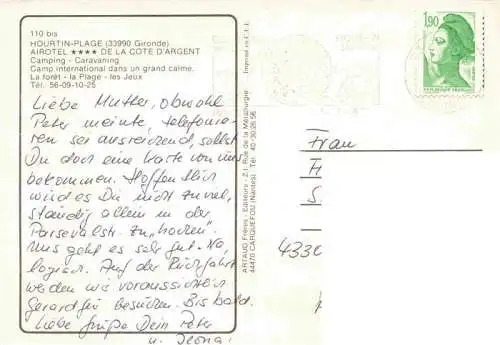 110 bis
HOURTIN-PLAGE (33990 Gironde)
AIROTEL ★★★★ DE LA COTE D'ARGENT
Camping - Caravaning
Camp international dans un grand calme.
La forêt - la Plage - les Jeux
Tél. 56-09-10-25
Liebe Mutter, obwohl
Peter meinte, telefonie-
ren sei ausreichend, sollst
Du doch eine Karte von uns
bekommen. Hoffentlich
wird es Dir nicht zuviel,
ständig allein in der
Parsevalstr. zu „hocken".
Uns geht es sehr gut. Na,
logisch. Auf der Rückfahrt
werden wir voraussichtlich
Gerard besuchen. Bis bald.
Liebe Grüße Dein Peter
u. Ilona.
ARTAUD Frères - Editeurs - Z.I. Rue de la Métallurgie
44470 CARQUEFOU (Nantes) - Tél. 40-30-26-56
Imprimé en C.E.E.
1,90
Frau
H
S
433